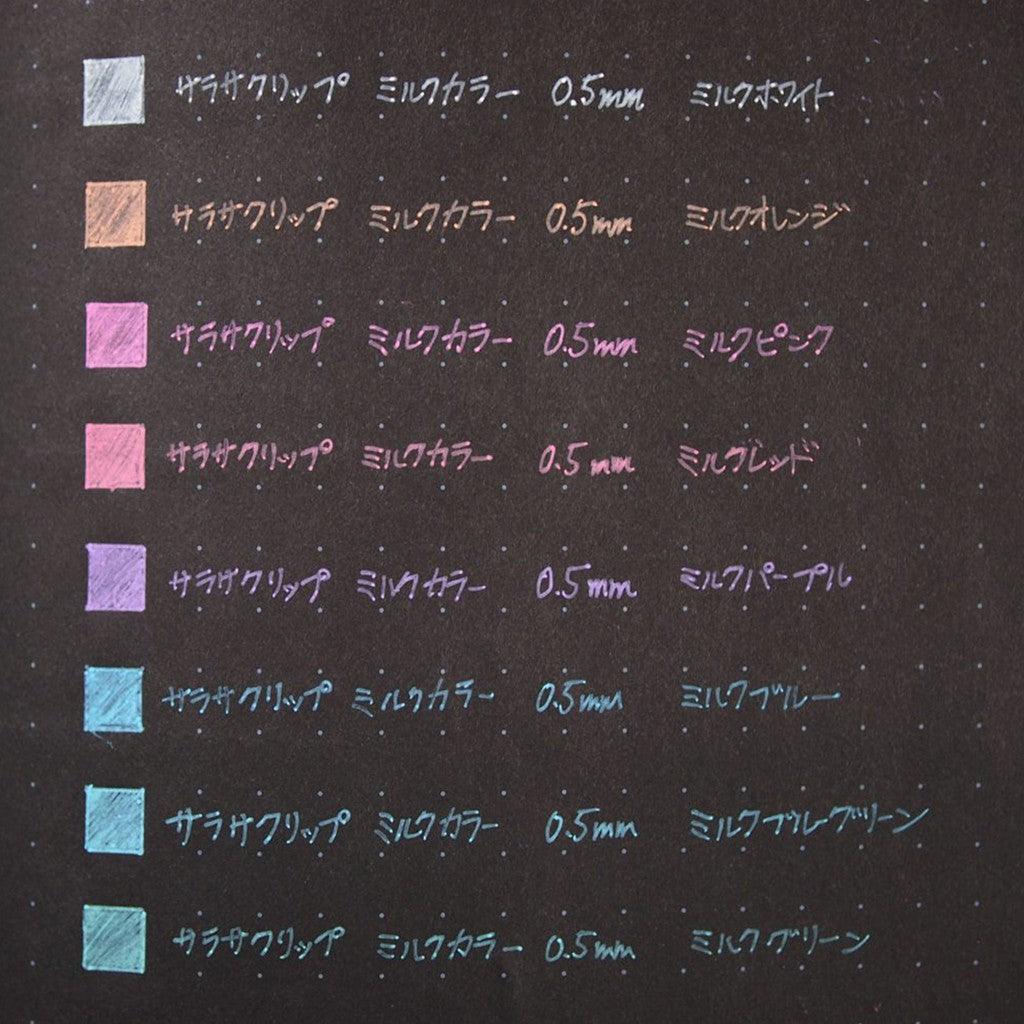 サラサクリップ ミルクカラー 0.5mm ミルクホワイト
サラサクリップ ミルクカラー 0.5mm ミルクオレンジ
サラサクリップ ミルクカラー 0.5mm ミルクピンク
サラサクリップ ミルクカラー 0.5mm ミルクレッド
サラサクリップ ミルクカラー 0.5mm ミルクパープル
サラサクリップ ミルクカラー 0.5mm ミルクブルー
サラサクリップ ミルクカラー 0.5mm ミルクブルーグリーン
サラサクリップ ミルクカラー 0.5mm ミルクグリーン